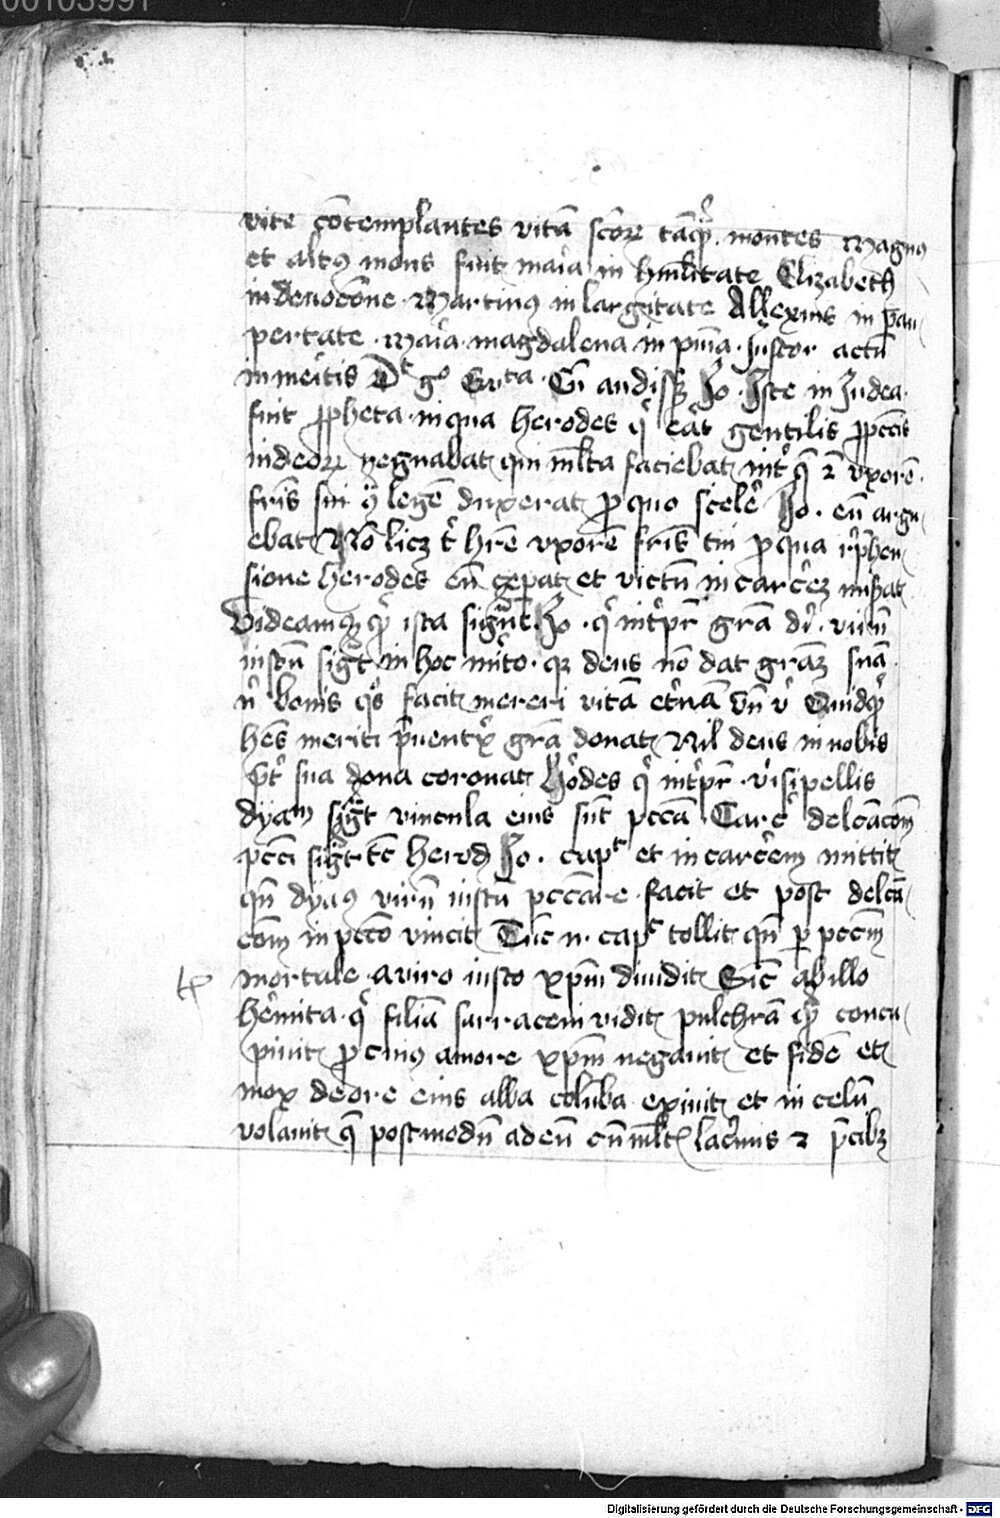 00103991
vite cõtemplantes vitã scõꝝ tãqͣ montes Magnꝰ
et altꝰ mons fuit maͥa in humlitate Elizabeth
in deuocõne · Martinꝰ in largitate Allexius in pau
pertate · maͥa magdalena in pnĩa · Justor actũ
in meͥtis Dͭ gͦ Cũ audiss Jo · Iste in Judea
fuit ꝓpheta · in qua herodes qͥ erat gentilis
iudeoꝝ regnabat qui ml̃ta faciebat int q̃ ⁊ vxorẽ
fris̃ sui duxerat ꝓ quo scelẽ Jo · eũ argu
ebat Nõ licꝫ tͥ hr̃e vxorẽ fris̃ tui ꝓ qua r̃phen
sione herodes eũ ceperat et victũ in carcerẽ misat
Videamꝰ qͥ ista signͣt · Jo · qͥ intp̃r grã dĩ · virũ
iustũ signͣt in hoc mĩto · qꝫ deus nõ dat grãm suã
nͥ bonis qͦs facit mereri vitã et̃nã Vñ vͥ Quidqͥ
hẽs meriti p̃uentͥx grã donat Nil deus in nobis
p̃t sua dona coronat Hõdes qͥ intp̃r · pellis
dyam signͣt vincula eius sũt pccã Carcͤ delcãcõm
pcci signͣt Tc̃ herod Jo · capͭ et in carcẽm mittit
qñ dyaꝰ virũ iustũ pccãre facit et post delcã
cõm in pccõ vincit Tũc n̄ · capͭ tollit qñ ꝑ pccm̃
mortale a viro iusto xpm̃ diuidit Sic ab illo
hẽmita · qͥ filiã sarraceni vidit pulchrã qͣ concu
piuit ꝓ cuiꝰ amore xpm̃ negauit et fidẽ et
mox de ore eius alba colũba exiuit et in celũ
volauit q̃ postmodũ ad eũ cũ ml̃tꝭ lacͥmis ⁊ p̃cibꝫ
Digitalisierung gefördert durch die Deutsche Forschungsgemeinschaft - DFG